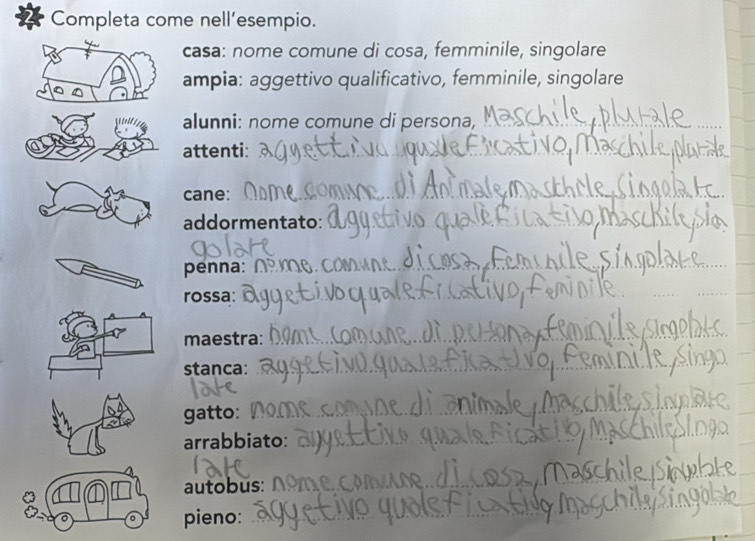 2 Completa come nell'esempio.
casa: nome comune di cosa, femminile, singolare
ampia: aggettivo qualificativo, femminile, singolare
alunni: nome comune di persona, Maschile, plurale
attenti: aggettivo qualeficativo, Maschile, plurale
cane: nome comune di Animale, maschile, singolare
addormentato: aggetivo qualeficativo, maschile, sin
golare
penna: nome comune di cosa, Feminile, singolare
rossa: aggetivo qualeficativo, feminile
maestra: nome comune di persona, feminile, singolare
stanca: aggetivo qualeficativo, feminile, singo
lare
gatto: nome comune di animale, maschile, singolare
arrabbiato: aggettivo qualeficativo, maschile, singo
lare
autobus: nome comune di cosa, maschile, singolare
pieno: aggetivo qualeficativo, maschile, singolare